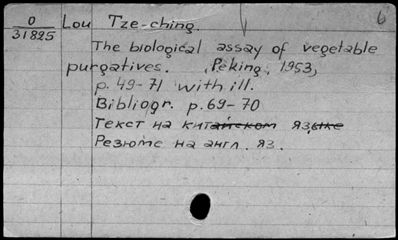 O
31825
Lou Tze-ching.
6
The biological assay of vegetable
purgatives. Peking, 1953,
p. 49-71 with ill.
Bibliogr. p. 69-70
Текст на китайском языке
Резюме на англ. яз.